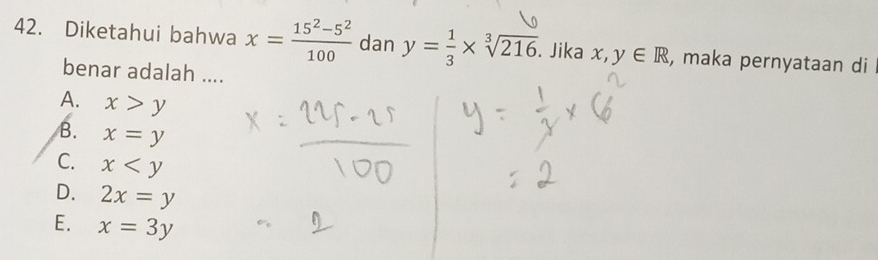 42. Diketahui bahwa x = \frac{15^2-5^2}{100} dan y = \frac{1}{3} × \sqrt[3]{216}. Jika x, y ∈ ℝ, maka pernyataan di
6
benar adalah ....
A. x > y
B. x = y
C. x < y
D. 2x = y
E. x = 3y
x = \frac{225-25}{100}
= 2
y = \frac{1}{3} × 6 2
= 2